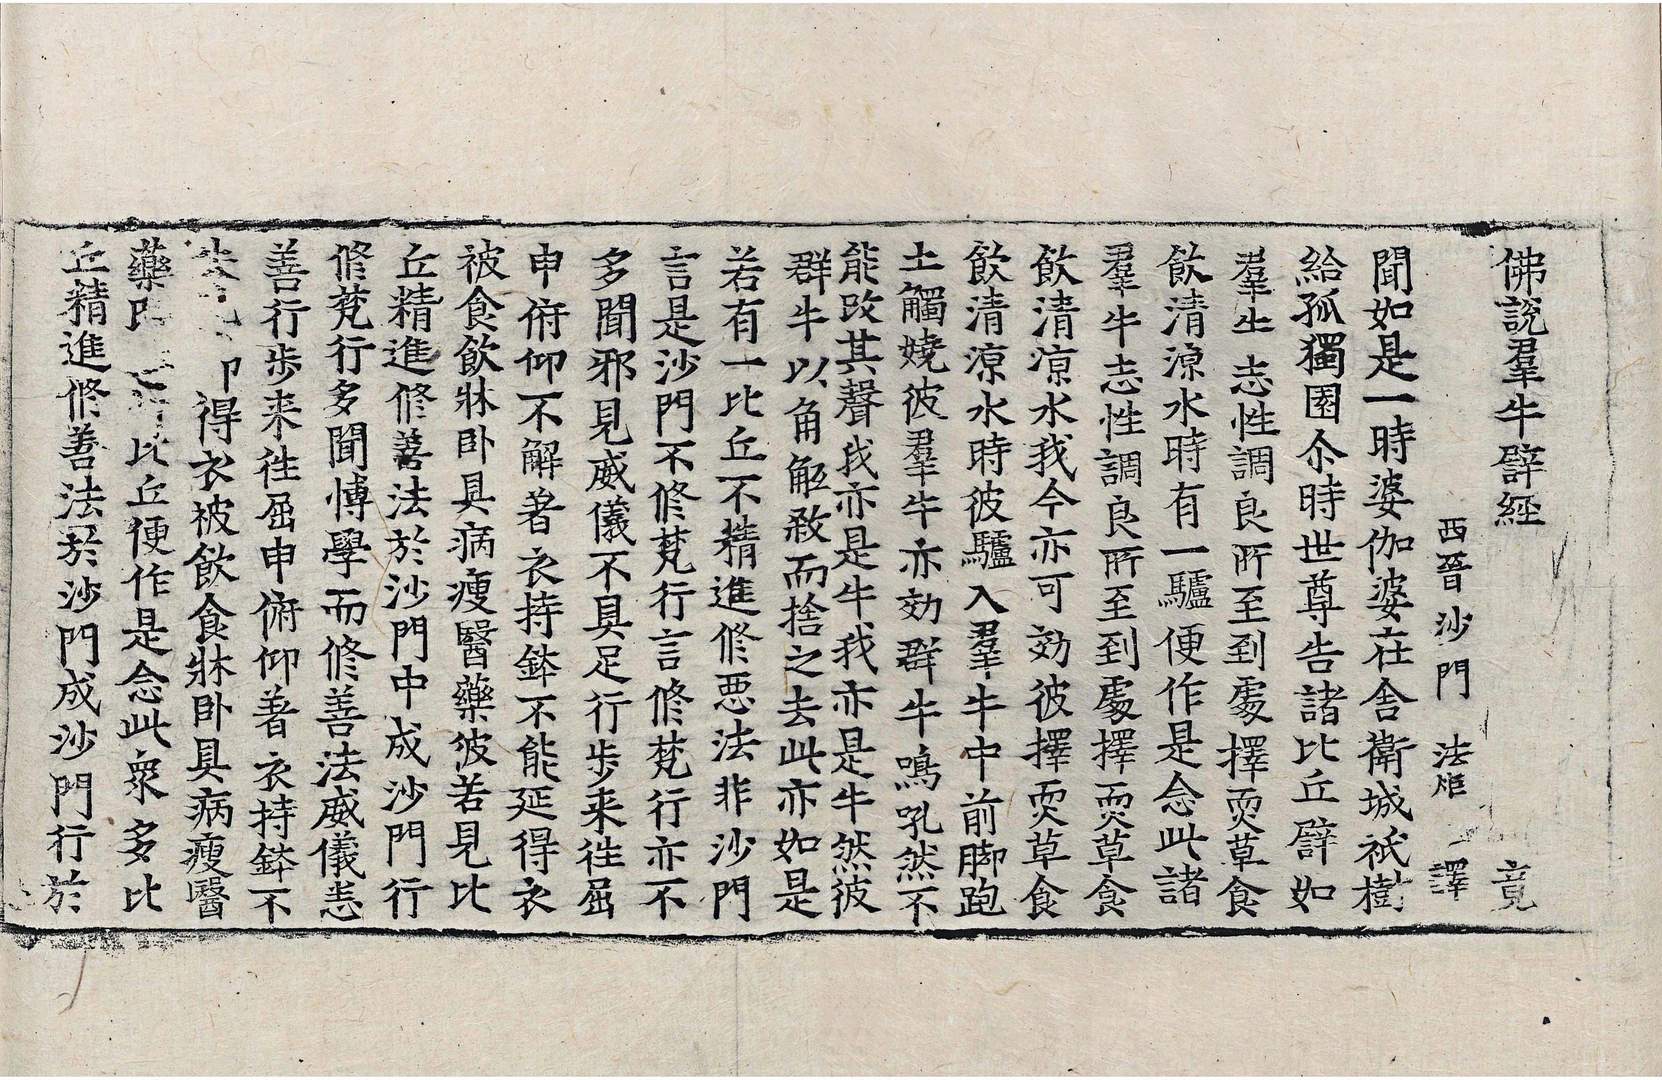 佛說羣牛譬經 竟
西晉沙門 法炬 譯
聞如是一時婆伽婆在舍衛城祇樹
給孤獨園尒時世尊告諸比丘譬如
羣牛志性調良所至到處擇耎草食
飲清涼水時有一驢便作是念此諸
羣牛志性調良所至到處擇耎草食
飲清涼水我今亦可効彼擇耎草食
飲清涼水時彼驢入羣牛中前脚跑
土觸嬈彼羣牛亦効群牛鳴吼然不
能改其聲我亦是牛我亦是牛然彼
群牛以角觝殺而捨之去此亦如是
若有一比丘不精進修惡法非沙門
言是沙門不修梵行言修梵行亦不
多聞邪見威儀不具足行步来往屈
申俯仰不解著衣持鉢不能延得衣
被食飲牀臥具病瘦醫藥彼若見比
丘精進修善法於沙門中成沙門行
修梵行多聞博學而修善法威儀悉
善行步来往屈申俯仰著衣持鉢不
失 得衣被飲食牀臥具病瘦醫
藥 比丘便作是念此衆多比
丘精進修善法於沙門成沙門行於